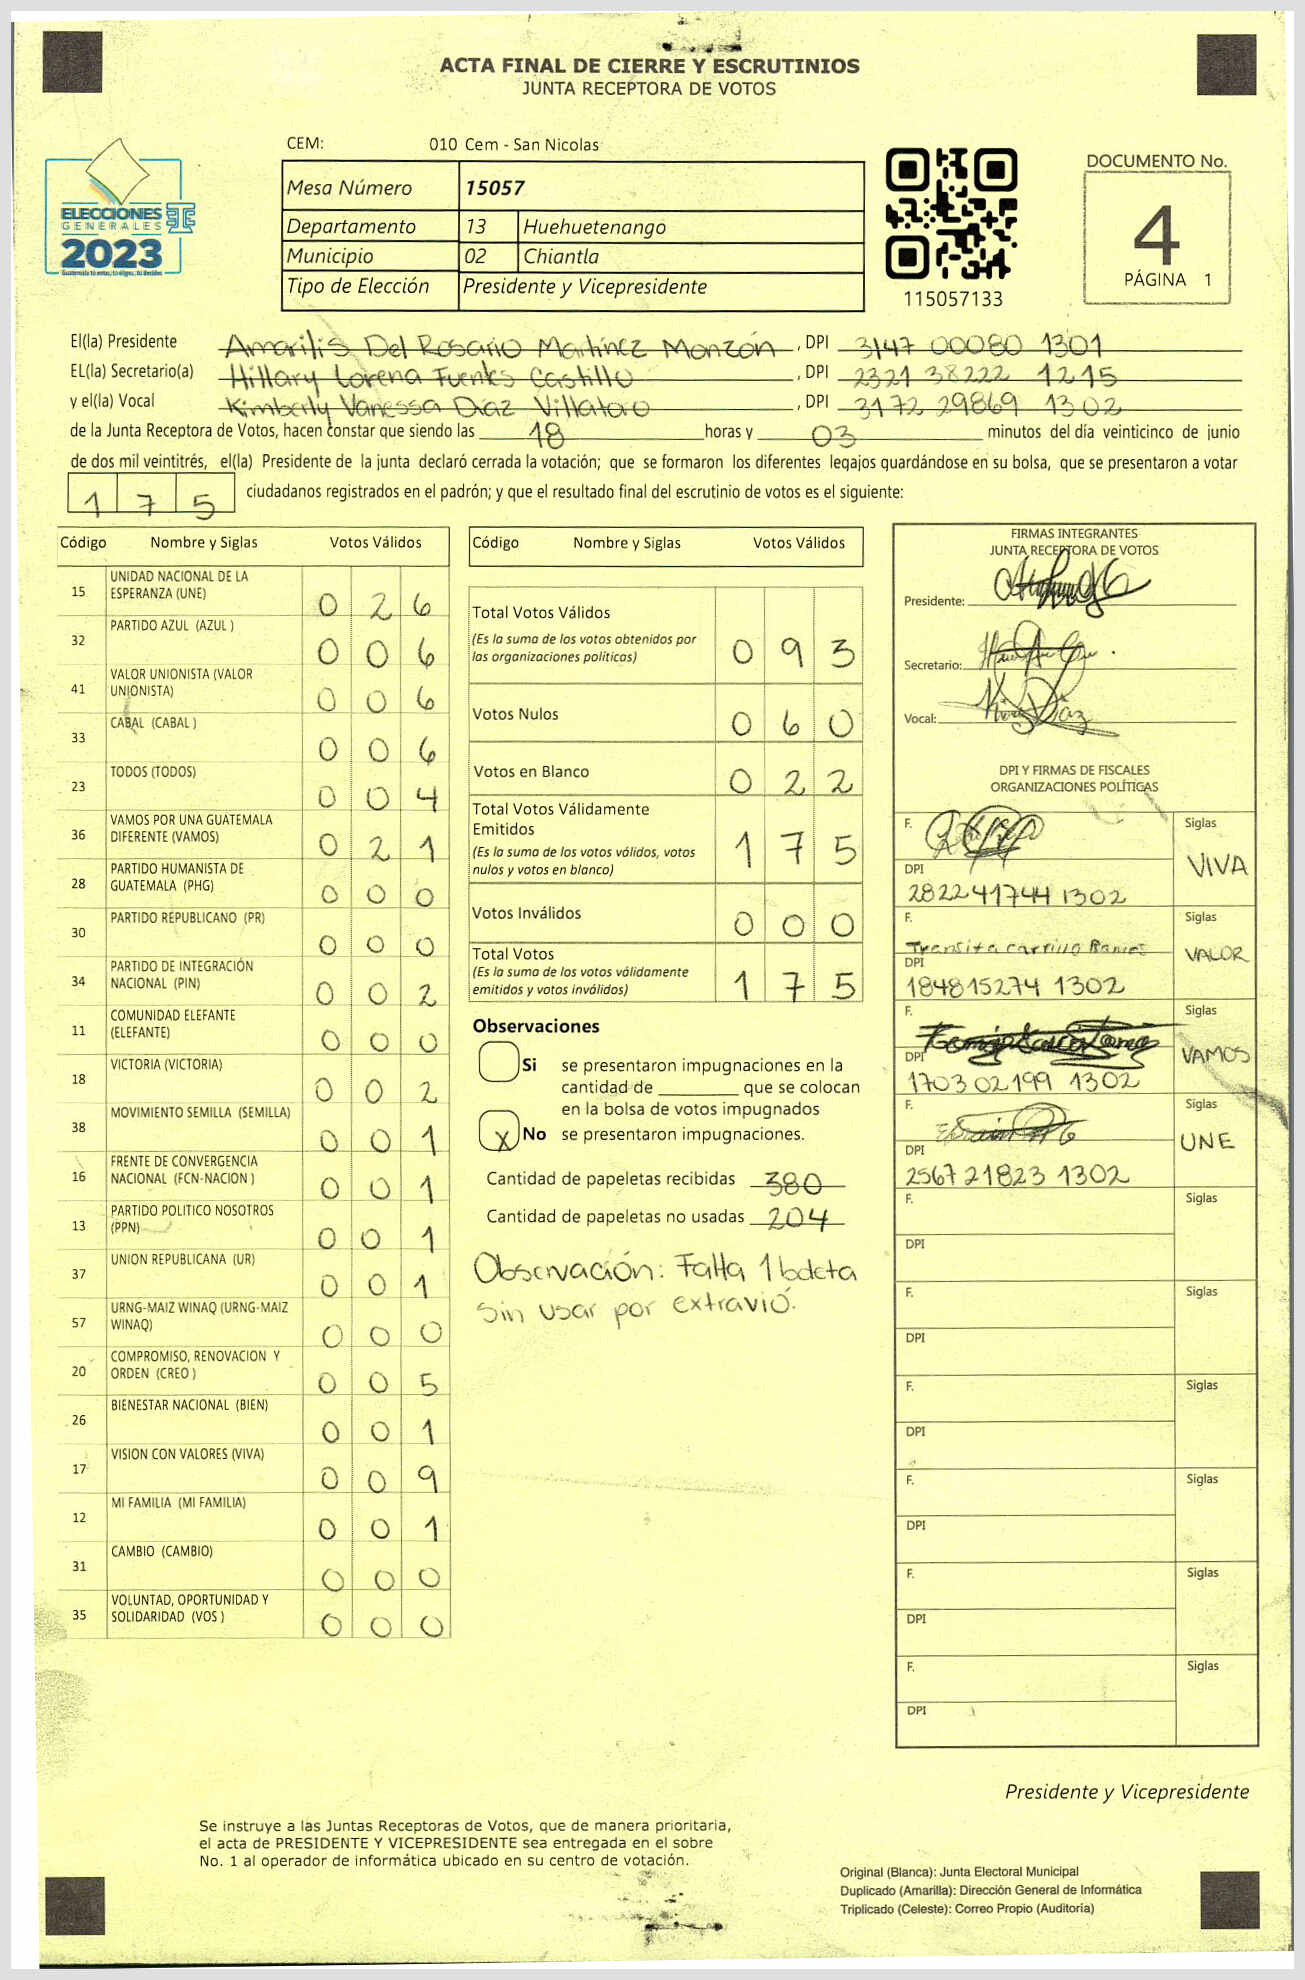 ACTA FINAL DE CIERRE Y ESCRUTINIOS
JUNTA RECEPTORA DE VOTOS
ELECCIONES
GENERALES
2023
CEM: 010 Cem - San Nicolas
Mesa Número 15057
Departamento 13 Huehuetenango
Municipio 02 Chiantla
Tipo de Elección Presidente y Vicepresidente
115057133
DOCUMENTO No.
4
PÁGINA 1
El(la) Presidente Amarilis Del Rosario Martínez Monzón , DPI 3147 00080 1301
EL(la) Secretario(a) Hillary Lorena Fuentes Castillo , DPI 2321 38222 1215
y el(la) Vocal Kimberly Vanessa Díaz Villatoro , DPI 3172 29869 1302
de la Junta Receptora de Votos, hacen constar que siendo las 18 horas y 03 minutos del día veinticinco de junio
de dos mil veintitrés, el(la) Presidente de la junta declaró cerrada la votación; que se formaron los diferentes legajos guardándose en su bolsa, que se presentaron a votar
1 7 5 ciudadanos registrados en el padrón; y que el resultado final del escrutinio de votos es el siguiente:
Código Nombre y Siglas Votos Válidos
15 UNIDAD NACIONAL DE LA
ESPERANZA (UNE) 0 2 6
32 PARTIDO AZUL (AZUL ) 0 0 6
41 VALOR UNIONISTA (VALOR
UNIONISTA) 0 0 6
33 CABAL (CABAL ) 0 0 6
23 TODOS (TODOS) 0 0 4
36 VAMOS POR UNA GUATEMALA
DIFERENTE (VAMOS) 0 2 1
28 PARTIDO HUMANISTA DE
GUATEMALA (PHG) 0 0 0
30 PARTIDO REPUBLICANO (PR) 0 0 0
34 PARTIDO DE INTEGRACIÓN
NACIONAL (PIN) 0 0 2
11 COMUNIDAD ELEFANTE
(ELEFANTE) 0 0 0
18 VICTORIA (VICTORIA) 0 0 2
38 MOVIMIENTO SEMILLA (SEMILLA) 0 0 1
16 FRENTE DE CONVERGENCIA
NACIONAL (FCN-NACION ) 0 0 1
13 PARTIDO POLITICO NOSOTROS
(PPN) 0 0 1
37 UNION REPUBLICANA (UR) 0 0 1
57 URNG-MAIZ WINAQ (URNG-MAIZ
WINAQ) 0 0 0
20 COMPROMISO, RENOVACION Y
ORDEN (CREO ) 0 0 5
26 BIENESTAR NACIONAL (BIEN) 0 0 1
17 VISION CON VALORES (VIVA) 0 0 9
12 MI FAMILIA (MI FAMILIA) 0 0 1
31 CAMBIO (CAMBIO) 0 0 0
35 VOLUNTAD, OPORTUNIDAD Y
SOLIDARIDAD (VOS ) 0 0 0
Código Nombre y Siglas Votos Válidos
Total Votos Válidos
(Es la suma de los votos obtenidos por
las organizaciones políticas) 0 9 3
Votos Nulos 0 6 0
Votos en Blanco 0 2 2
Total Votos Válidamente
Emitidos
(Es la suma de los votos válidos, votos
nulos y votos en blanco) 1 7 5
Votos Inválidos 0 0 0
Total Votos
(Es la suma de los votos válidamente
emitidos y votos inválidos) 1 7 5
Observaciones
Si se presentaron impugnaciones en la
cantidad de que se colocan
en la bolsa de votos impugnados
X No se presentaron impugnaciones.
Cantidad de papeletas recibidas 380
Cantidad de papeletas no usadas 204
Observación: Falta 1 boleta
sin usar por extravió.
FIRMAS INTEGRANTES
JUNTA RECEPTORA DE VOTOS
Presidente:
Secretario:
Vocal:
DPI Y FIRMAS DE FISCALES
ORGANIZACIONES POLÍTICAS
F. Siglas
VIVA
DPI
2822 41744 1302
F. Siglas
Transita Carrillo Ramos VALOR
DPI
1848 15274 1302
F. Siglas
VAMOS
DPI
1703 02199 1302
F. Siglas
UNE
DPI
2567 21823 1302
F. Siglas
DPI
F. Siglas
DPI
F. Siglas
DPI
F. Siglas
DPI
F. Siglas
DPI
F. Siglas
DPI
Presidente y Vicepresidente
Se instruye a las Juntas Receptoras de Votos, que de manera prioritaria,
el acta de PRESIDENTE Y VICEPRESIDENTE sea entregada en el sobre
No. 1 al operador de informática ubicado en su centro de votación.
Original (Blanca): Junta Electoral Municipal
Duplicado (Amarilla): Dirección General de Informática
Triplicado (Celeste): Correo Propio (Auditoría)